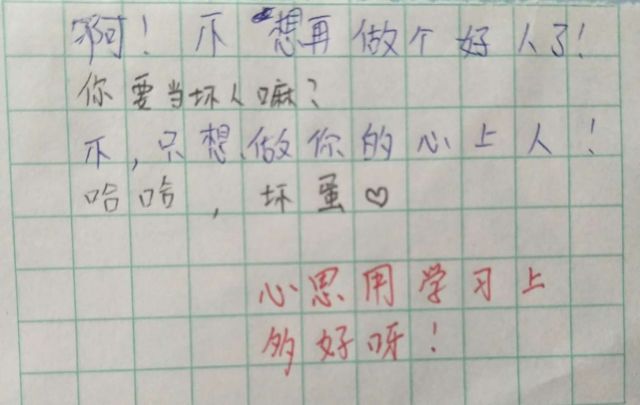 啊！不想再做个好人了！
你要当坏人嘛？
不，只想做你的心上人！
哈哈，坏蛋♡
心思用学习上
多好呀！